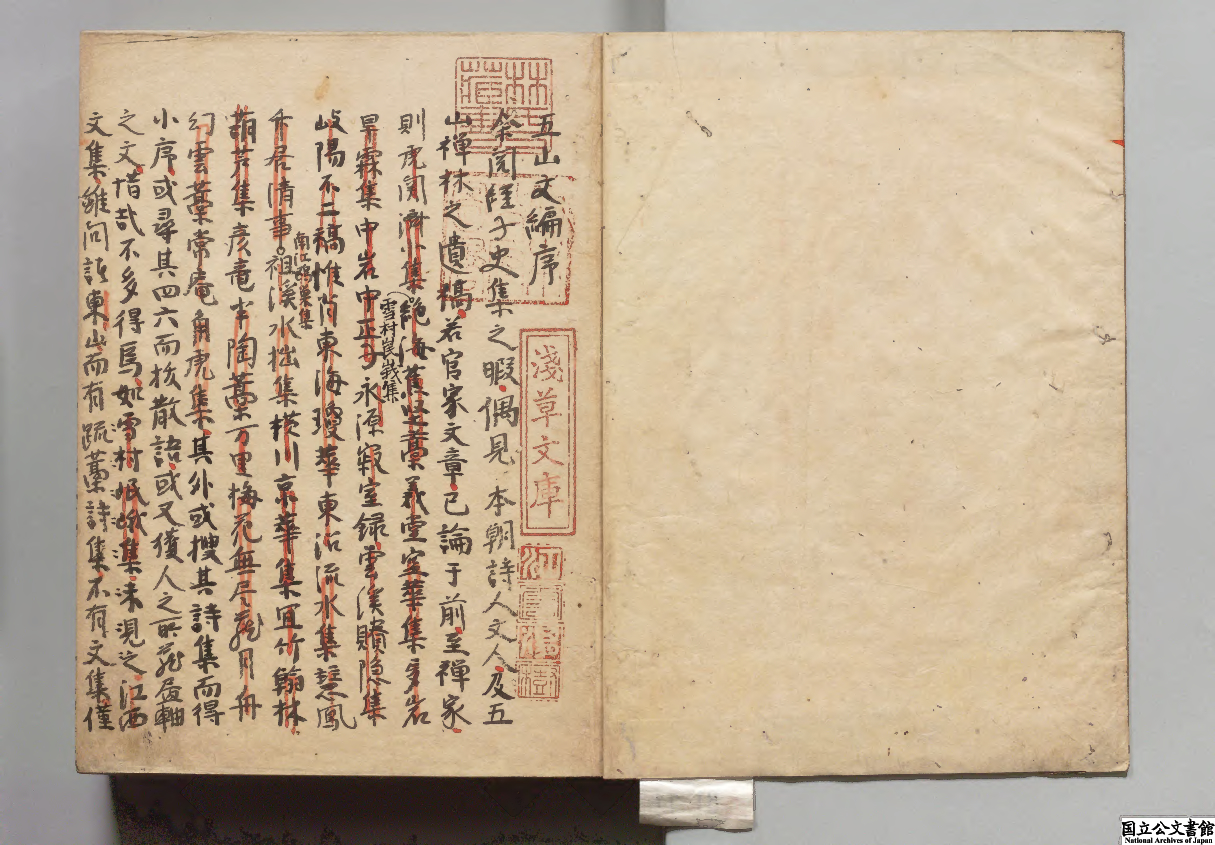 五山文編序
余閲經子史集之暇偶見 本朝詩人文人及五
山禅林之遺稿若官家文章已論于前至禅家
則虎関濟北集絶海蕉堅藁義堂空華集多岩
(雪村岷峩集
旱霖集中岩中正子永源寂室録雲溪賸隐集
岐陽不二稿惟肖東海瓊華東沼流水集慧鳳
南江鴎巣集
竹居清事祖溪水拙集横川京華集宜竹翰林
葫芦集彦竜半陶藁万里梅花無尽蔵月舟
幻雲藁常庵角虎集其外或捜其詩集而得
小序或尋其四六而抜散語或又獲人之所蔵巻軸
之文惜哉不多得焉如雪村岷峨集未見之江西
文集雖問諸東山而有疏藁詩集不有文集僅
林氏
藏書
淺草文庫
国立公文書館
National Archives of Japan